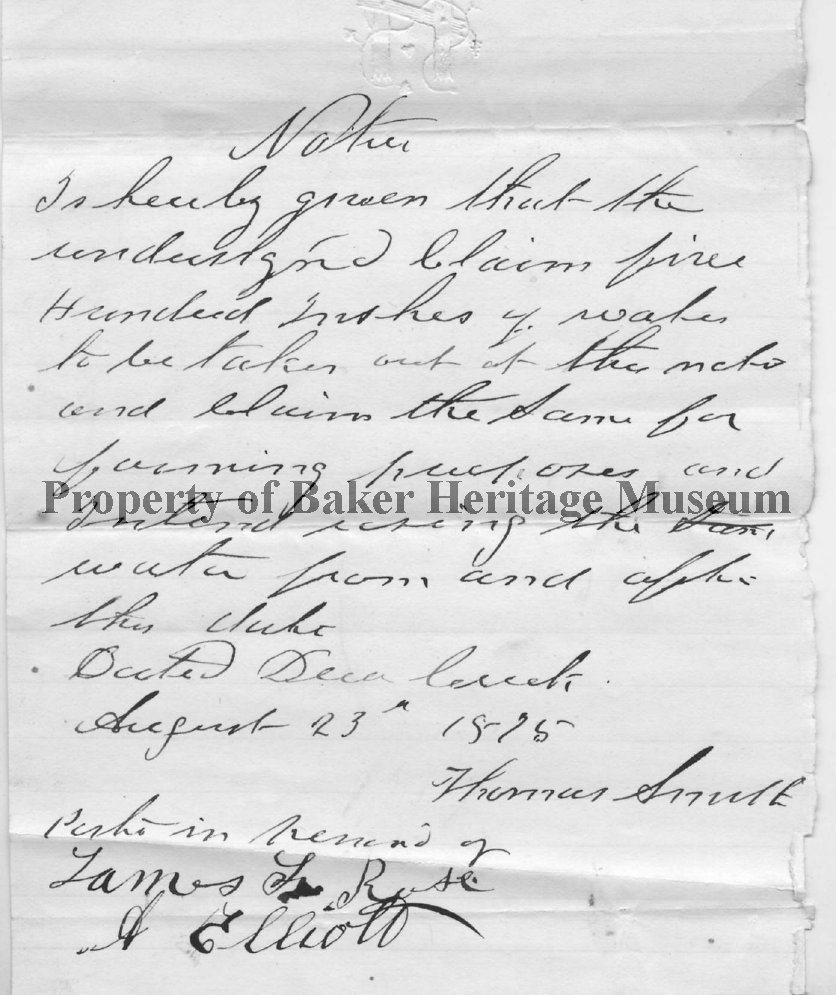 Notice
Is hereby given that the
undersigned Claim five
Hundred Inshes of water
to be taken out at this
and Claim the Same for
farming purposes and
Property of Baker Heritage Museum
Intend using the Same
water from and after
this date
Dated Creek
August 23 1875
Thomas Smith
in of
James Rose
A Elliott